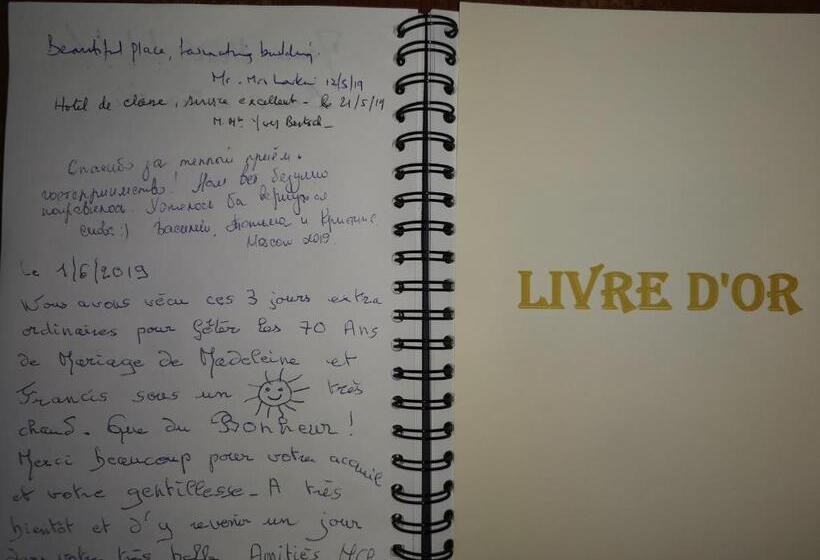 Beautiful place, fascinating building.
Mr. Mrs 12/5/19
Hotel de classe, service excellent - le 21/5/19
M. Mme Yves
Спасибо за теплый приём.
гостеприимство! Нам все безумно
понравилось. Хотелось бы вернуться
снова :) Василий, Татьяна и Кристина.
Moscow 2019.
Le 1/6/2019
Nous avons vécu ces 3 jours extra
ordinaires pour fêter les 70 Ans
de Mariage de Madeleine et
Francis sous un très
chaud. Que du Bonheur!
Merci beaucoup pour votre accueil
et votre gentillesse - A très
bientôt et d'y revenir un jour
dans votre très belle Amitiés
LIVRE D'OR